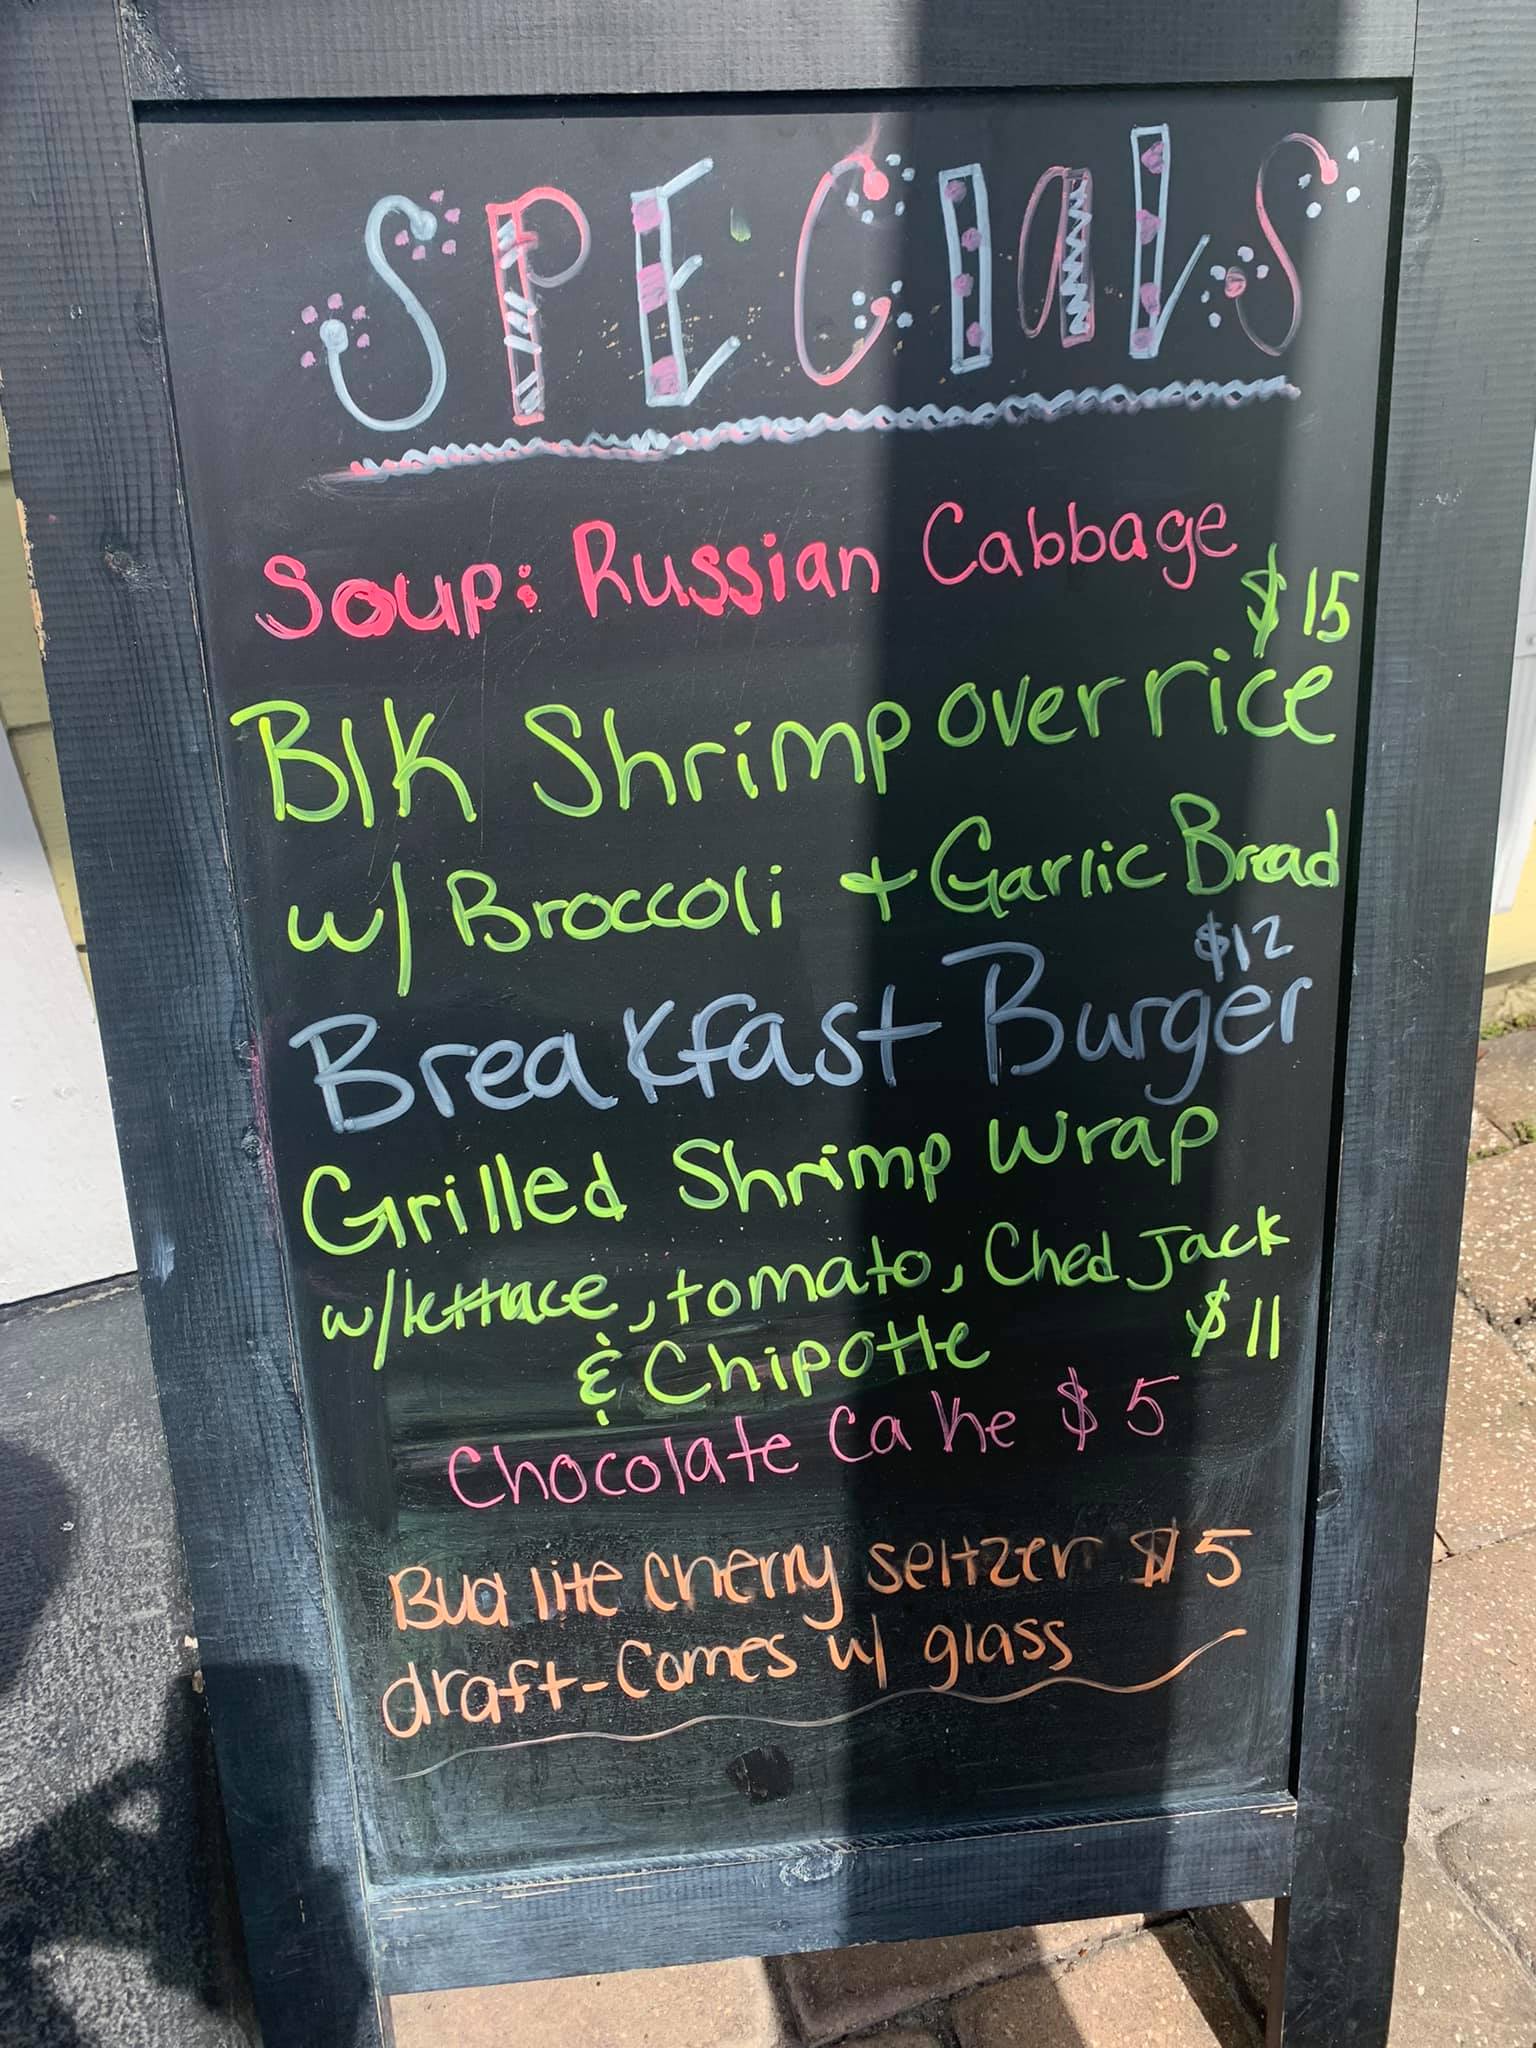 SPECIALS
Soup: Russian Cabbage
$15
Blk Shrimp over rice
w/ Broccoli + Garlic Bread
$12
Breakfast Burger
Grilled Shrimp Wrap
w/lettace, tomato, Ched Jack
& Chipotle $11
Chocolate Cake $5
Bud lite Cherry seltzer $5
draft-Comes w/ glass